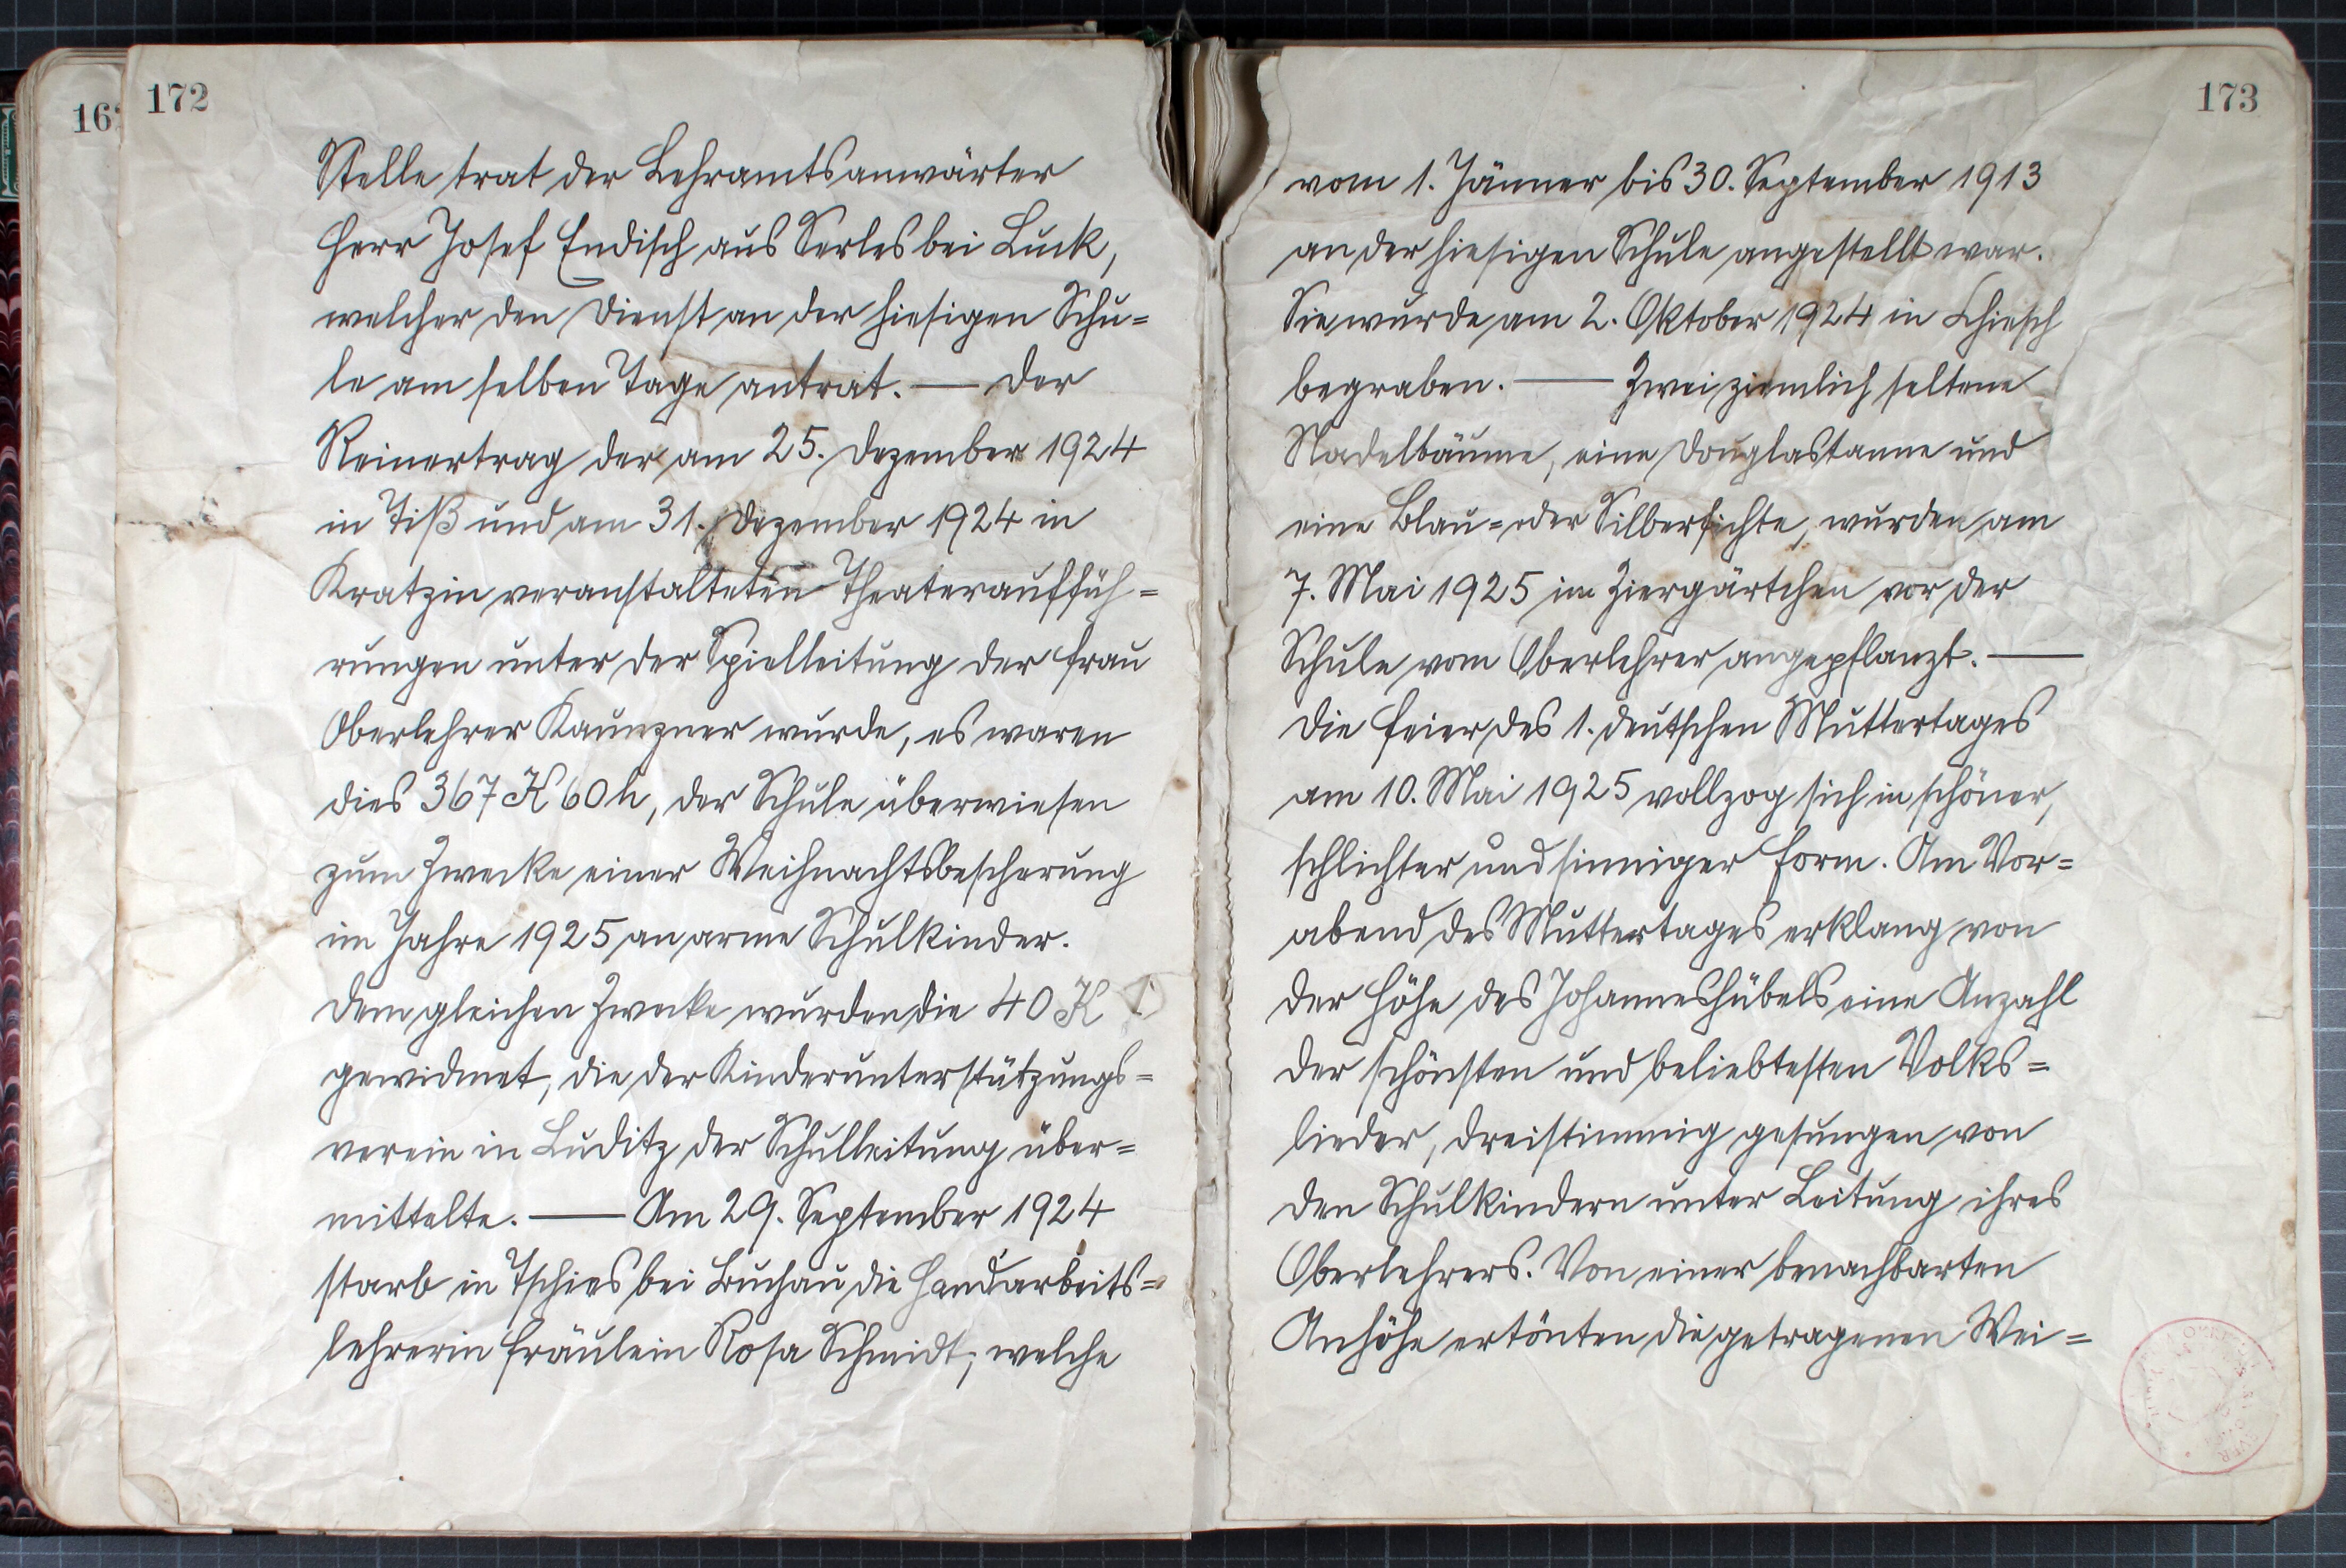 162
172
Stelle trat der Lehramtsanwärter
Herr Josef Endisch aus Serles bei Luck,
welcher den Dienst an der hiesigen Schu=
le am selben Tage antrat. — Der
Reinertrag der am 25. Dezember 1924
in Tiß und am 31. Dezember 1924 in
Kratzin veranstalteten Theaterauffüh=
rungen unter der Spielleitung der Frau
Oberlehrer Kaunzner wurde, es waren
dies 367 K 60 h, der Schule überwiesen
zum Zwecke einer Weihnachtsbescherung
im Jahre 1925 an arme Schulkinder.
Dem gleichen Zwecke wurden die 40 K
gewidmet, die der Kinderunterstützungs=
verein in Luditz der Schulleitung über=
mittelte. — Am 29. September 1924
starb in Tschies bei Buchau die Handarbeits=
lehrerin Fräulein Rosa Schmidt, welche
173
vom 1. Jänner bis 30. September 1913
an der hiesigen Schule angestellt war.
Sie wurde am 2. Oktober 1924 in Chiesch
begraben. — Zwei ziemlich seltene
Nadelbäume, eine Douglastanne und
eine Blau= oder Silberfichte, wurden am
7. Mai 1925 im Ziergärtchen vor der
Schule vom Oberlehrer angepflanzt. —
Die Feier des 1. deutschen Muttertages
am 10. Mai 1925 vollzog sich in schöner,
schlichter und sinniger Form. Am Vor=
abend des Muttertages erklang von
der Höhe des Johanneshübels eine Anzahl
der schönsten und beliebtesten Volks=
lieder, dreistimmig gesungen von
den Schulkindern unter Leitung ihres
Oberlehrers. Von einer benachbarten
Anhöhe ertönten die getragenen Wei=